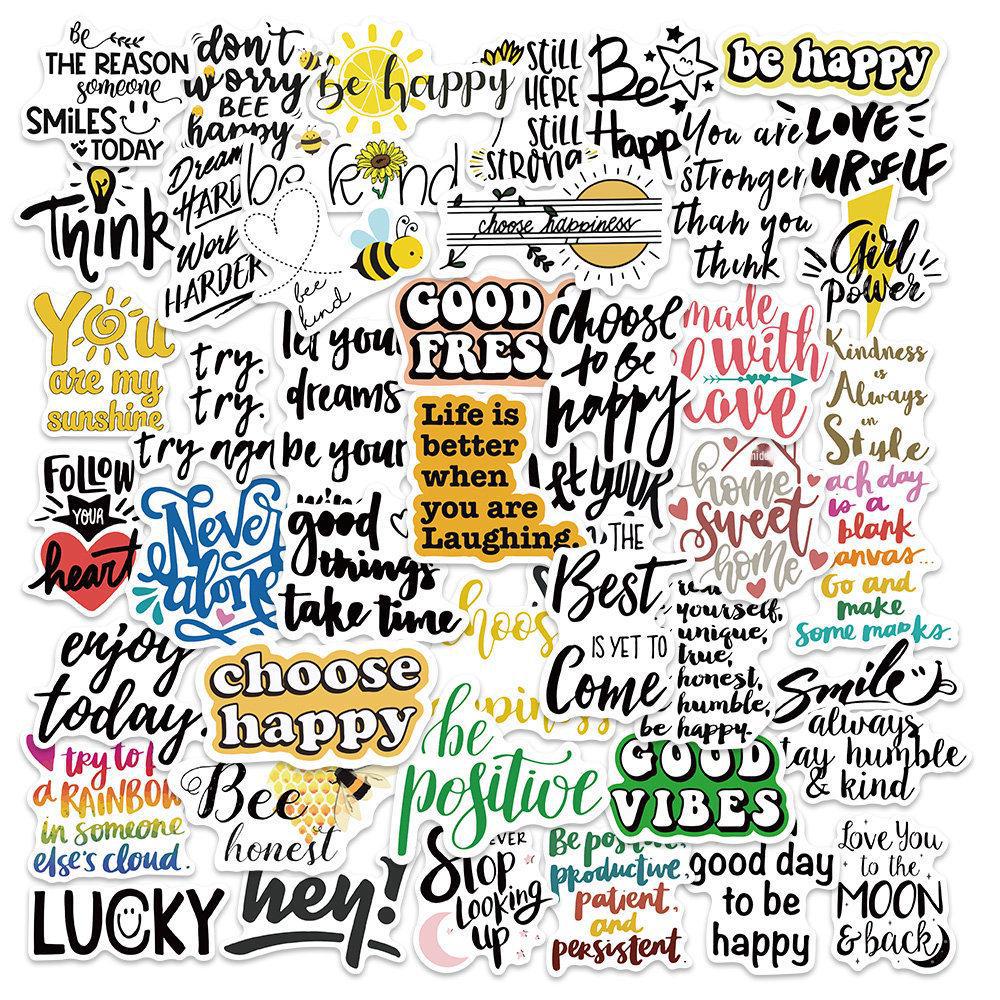 Be
THE REASON
someone
SMILES
TODAY
don't
worry
BEE
happy
be happy
STILL
HERE
STILL
STRONG
Be
Happ
be happy
You are
stronger
than you
think
LOVE
URSELF
Think
Dream
HARD
Work
HARDER
be kind
bee
kind
choose happiness
Girl
Power
You
are my
sunshine
try.
try.
try aga
let you
dreams
be your
GOOD
FRES
choose
to be
happy
made
with
love
Kindness
is
Always
in
Style
FOLLOW
YOUR
heart
Never
alone
good
things
take time
Life is
better
when
you are
Laughing.
let your
home
sweet
home
ach day
is a
blank
anvas...
Go and
make
some marks.
enjoy
today.
choose
happy
hoos
ppines
THE
Best
IS YET TO
Come
yourself,
unique,
true,
honest,
humble,
be happy.
Smile
always
tay humble
& kind
try to
a RAINBOW
in someone
else's cloud.
Bee
honest
be
positive
GOOD
VIBES
LUCKY
hey!
EVER
Stop
Looking
up
Be positive,
productive,
patient,
and
persistent.
good day
to be
happy
Love You
to the
MOON
& back